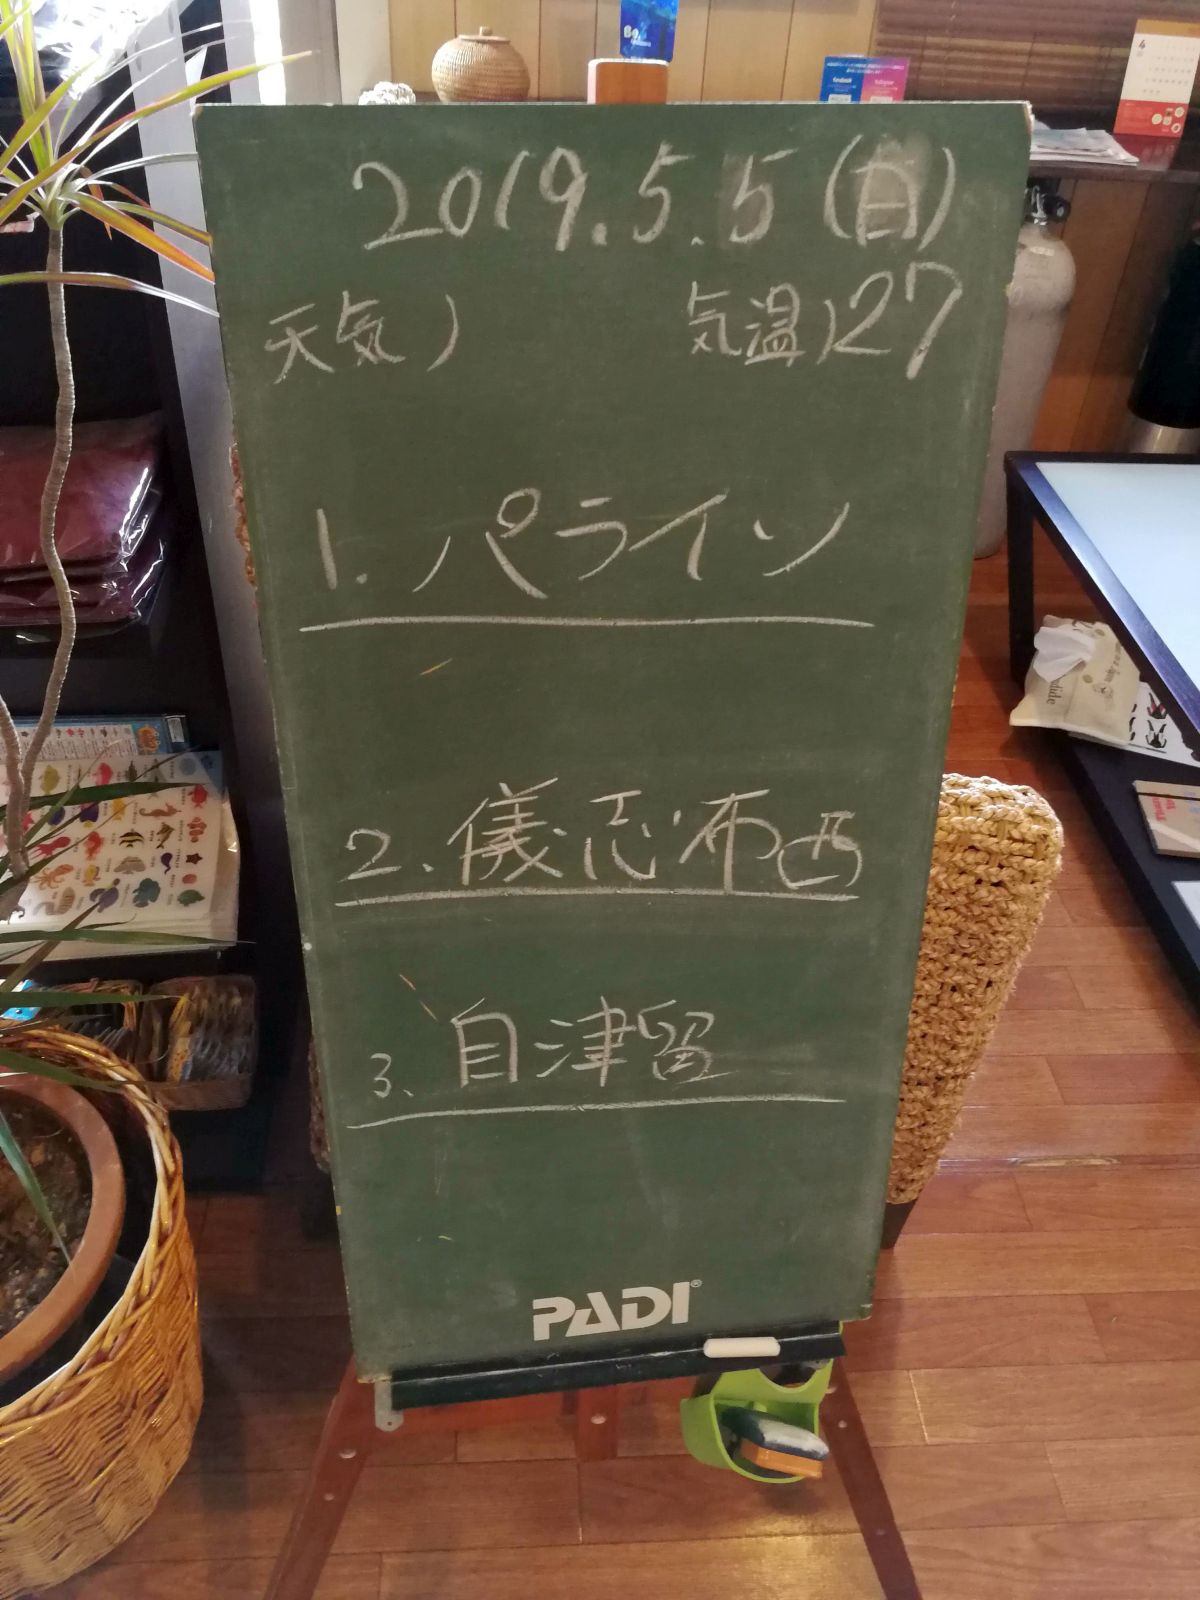 2019.5.5(日)
天気) 気温)27
1. パライソ
2. 儀志布西
3. 自津留
PADI®